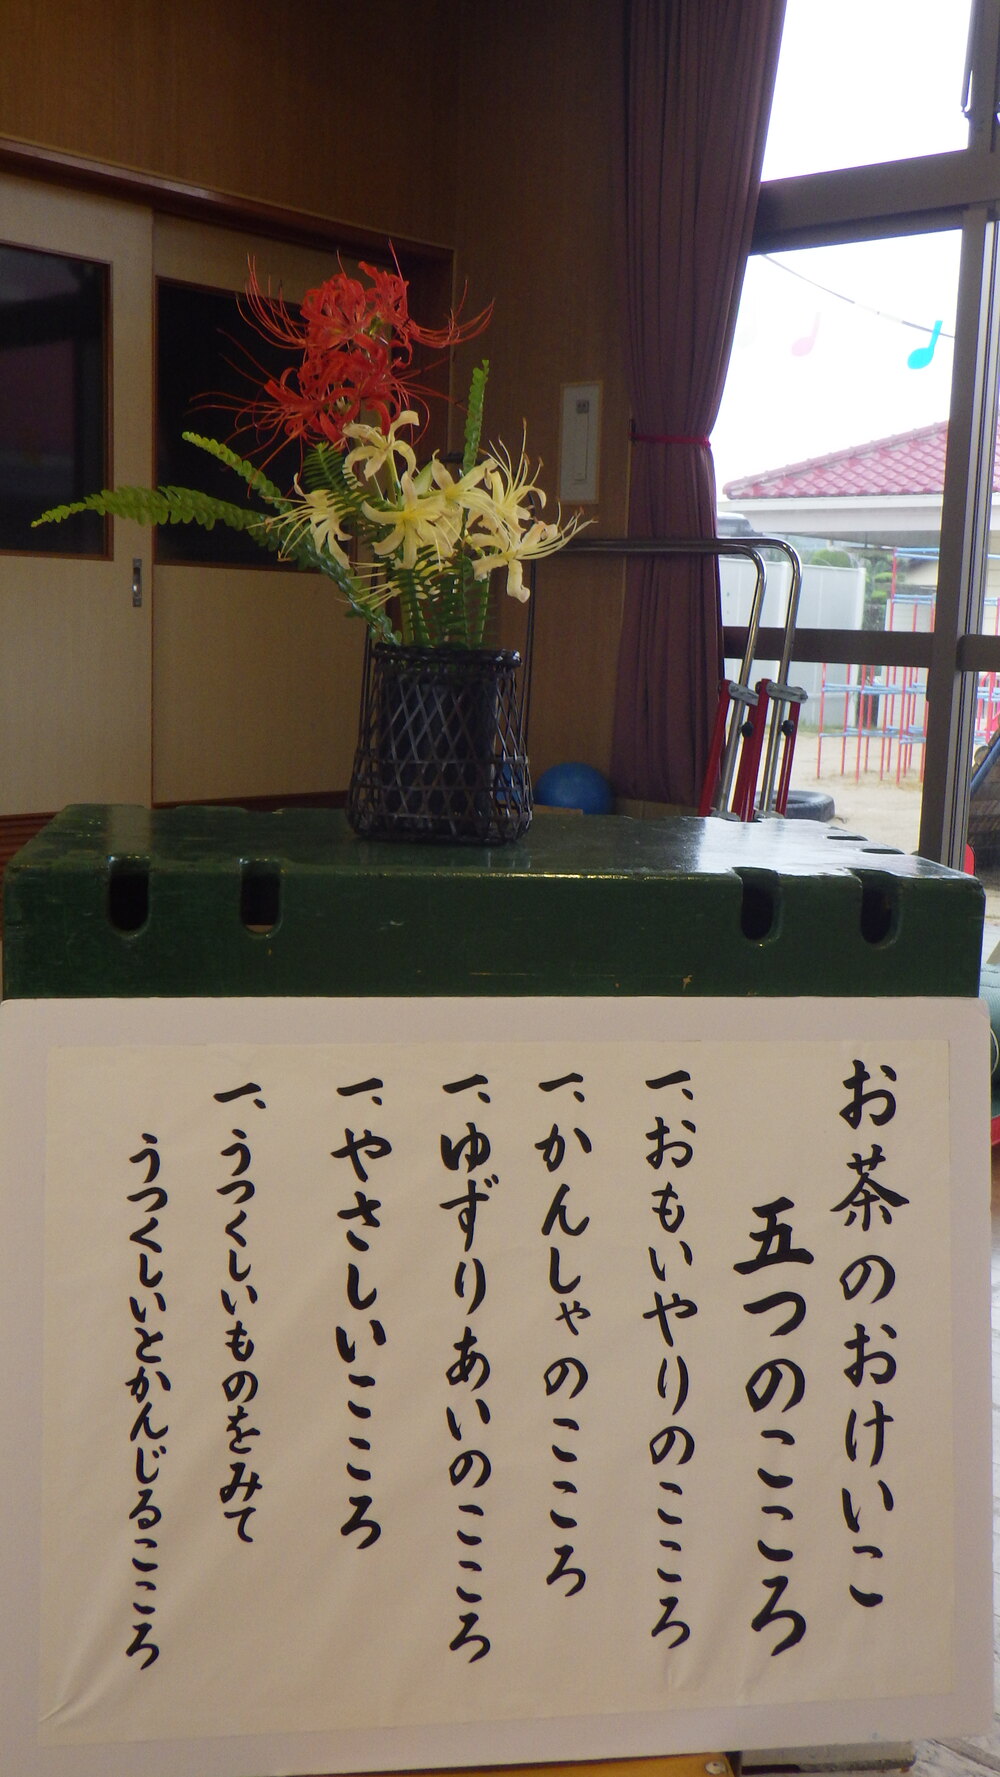 お茶のおけいこ
五つのこころ
一、おもいやりのこころ
一、かんしゃのこころ
一、ゆずりあいのこころ
一、やさしいこころ
一、うつくしいものをみて
うつくしいとかんじるこころ